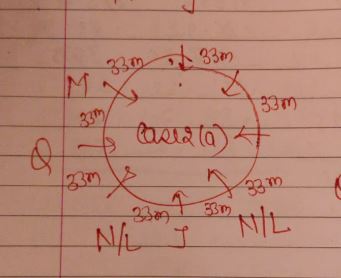 33m 33m
M 33m
33m Case2(a)
Q
33m 33m
33m 33m
N/L J N/L